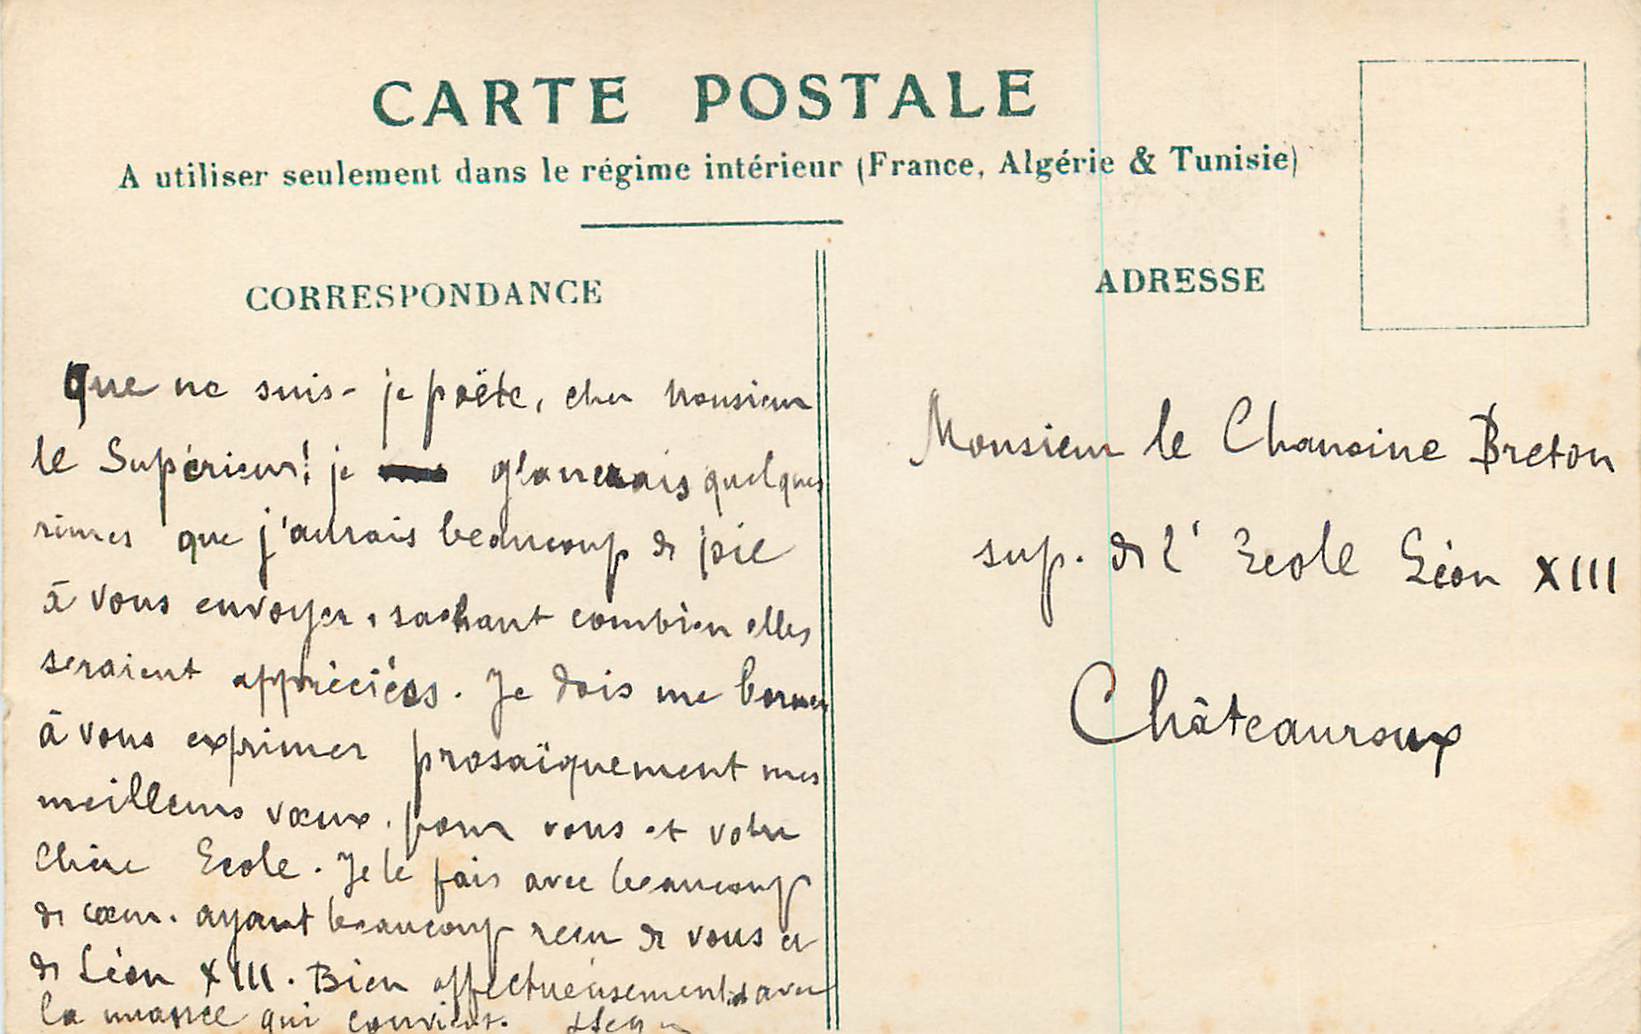 CARTE POSTALE
A utiliser seulement dans le régime intérieur (France, Algérie & Tunisie)
CORRESPONDANCE
Que ne suis-je poëte, cher Monsieur
le Supérieur! je glanerais quelques
rimes que j'aurais beaucoup de joie
à vous envoyer, sachant combien elles
seraient appréciées. Je dois me borner
à vous exprimer prosaïquement mes
meilleurs vœux, pour vous et votre
chère Ecole. Je le fais avec beaucoup
de cœur, ayant beaucoup reçu de vous et
de Léon XIII. Bien affectueusement avec
la nuance qui convient.
ADRESSE
Monsieur le Chanoine Breton
sup. de l'Ecole Léon XIII
Châteauroux